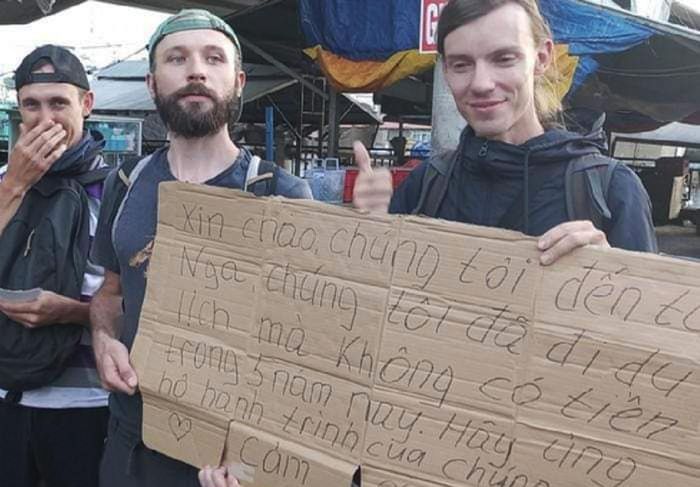 G
Xin chao, chúng tôi đến từ
Nga chúng tôi đã đi du
lịch mà không có tiền
trong 5 năm nay. Hãy ủng
hộ hành trình của chúng
♡ Cảm